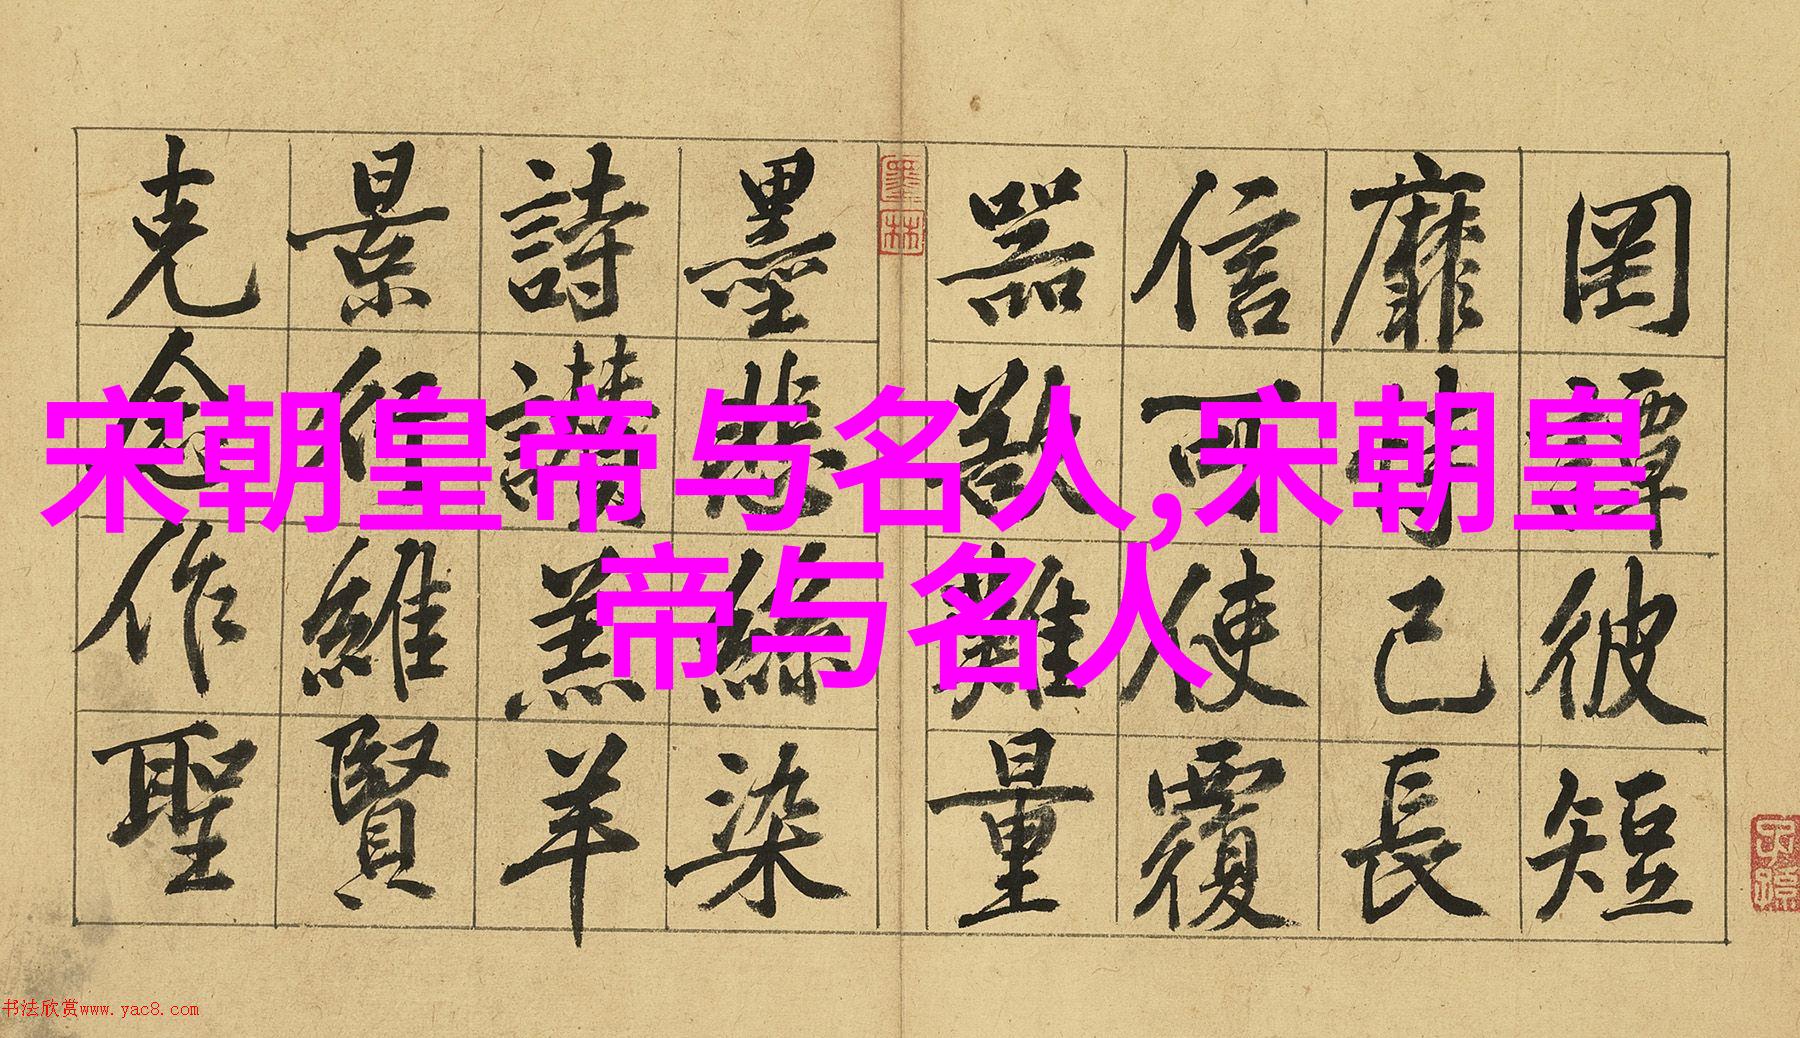 罔談彼短
靡恃己長
信可使覆
器欲難量
墨悲絲染
詩讃羔羊
景行維賢
克念作聖
宋朝皇帝与名人,宋朝皇
帝与名人
墨林
书法欣赏www.yac8.com